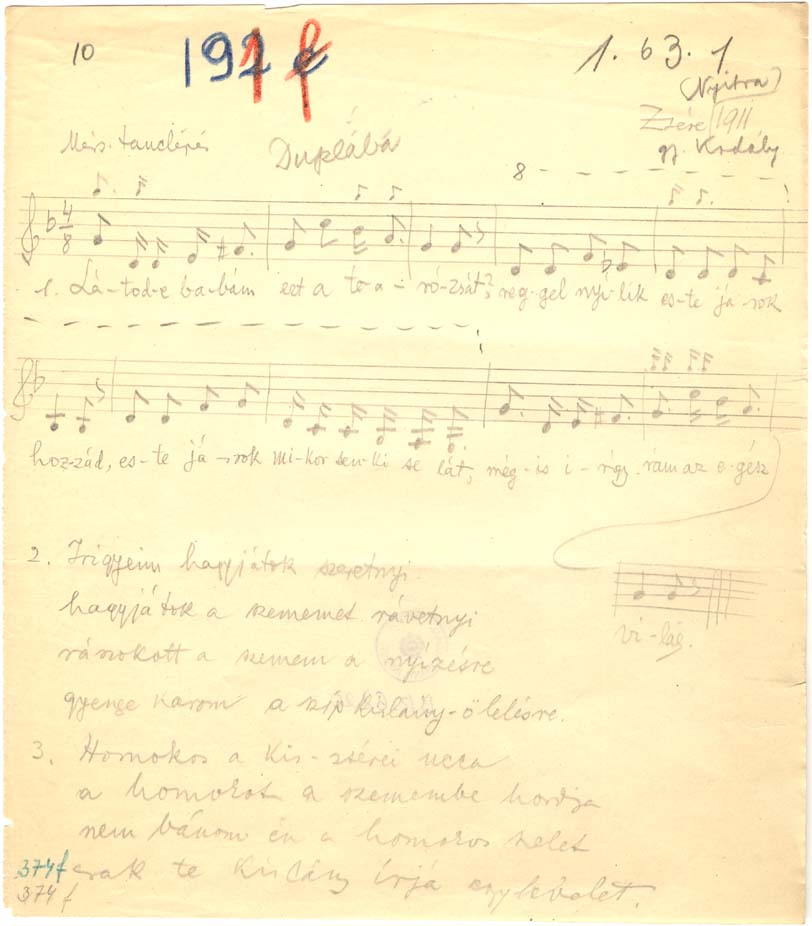 10
197 f
1. 63. 1
(Nyitra)
Zsére 1911
gy. Kodály
Mérs. tánclépés
Duplábá
8
4/8
1. Lá-tod-e ba-bám eet a te-a-ró-zsát? reg-gel nyi-lik es-te já-rok
hoz-zád, es-te já-rok mi-kor sen-ki se lát, még-is i-rígy rám az e-gész
vi-lág.
2. Irigyeim hagyjátok szeretnyi
hagyjátok a szememet rávetnyi
rászokott a szemem a nyízésre
gyenge karom a szíp kislány-ölelésre.
3. Homokos a kis-zsérei ucca
a homokot a szemembe hordja
nem bánom én a homokos szelet
csak te kislány írjá egy levelet.
374 f
374 f